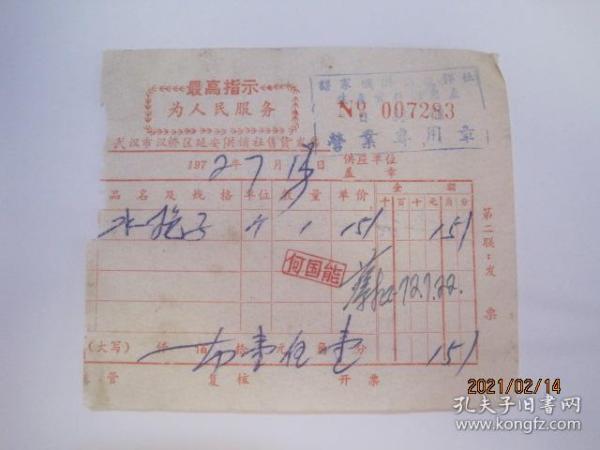 最高指示
为人民服务
No 007283
营业专用章
武汉市汉桥区延安供销社售货发
1972年7月 日 供应单位
盖章
品名及规格 单位 数量 单价 金额
千百十元角分
水 子 个 1 151 151
何国能
72.7.22.
(大写) 仟佰拾元角分 151
管 复核 开票
第二联:发票
2021/02/14
孔夫子旧书网
www.kongfz.com